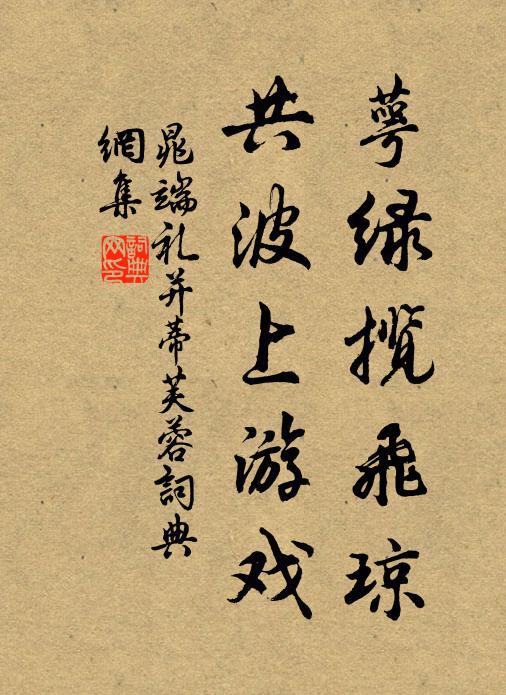 萼绿揽飞琼
共波上游戏
晁端礼并蒂芙蓉詞典
網集
詞典网印